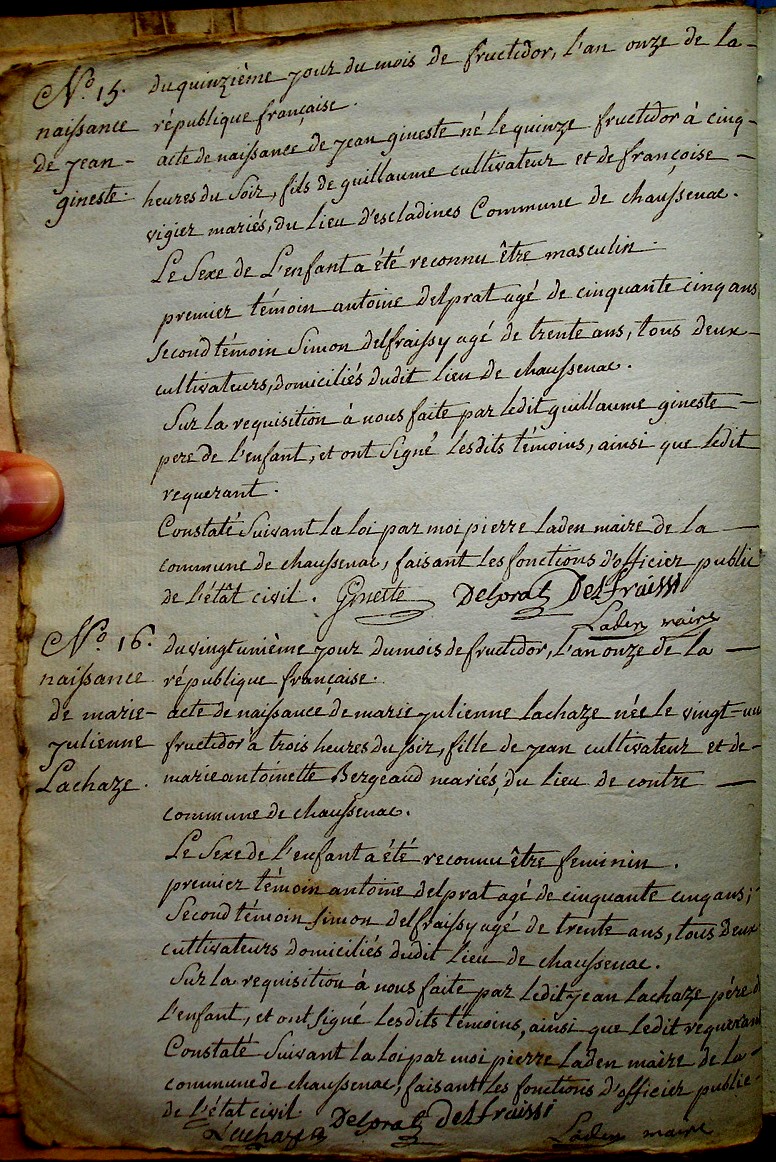 N.º 15.
naissance
de jean-
gineste.
du quinzième jour du mois de fructidor, l'an onze de la-
république française.
acte de naissance de jean gineste né le quinze fructidor à cinq-
heures du Soir, fils de guillaume cultivateur et de françoise —
vigier mariés, du lieu d'escladines Commune de chaussenac.
Le Sexe de L'enfant a été reconnu être masculin.
premier témoin antoine delprat agé de cinquante cinq ans
Second témoin Simon delfraissy agé de trente ans, tous deux-
cultivateurs, domiciliés dudit lieu de chaussenac.
Sur la requisition à nous faite par ledit guillaume gineste —
pere de l'enfant, et ont Signé lesdits témoins, ainsi que ledit
requerant.
Constaté Suivant la loi par moi pierre laden maire de la —
commune de chaussenac, faisant les fonctions d'officier public
de l'état civil. Ginette Delprat Delfraissi
Laden maire
N.º 16.
naissance
de marie-
julienne
Lachaze.
du vingt unième jour du mois de fructidor, l'an onze de la —
république française.
acte de naissance de marie julienne lachaze née le vingt-un
fructidor à trois heures du soir, fille de jean cultivateur et de-
marie antoinette Bergeaud mariés, du lieu de contre —
commune de chaussenac.
Le Sexe de l'enfant a été reconnu être feminin.
premier témoin antoine delprat agé de cinquante cinq ans;
Second témoin simon delfraissy agé de trente ans, tous Deux
cultivateurs domiciliés dudit lieu de chaussenac.
Sur la requisition à nous faite par ledit jean lachaze pére d
l'enfant, et ont signé lesdits témoins, ainsi que ledit requerant
Constaté Suivant la loi par moi pierre laden maire de la-
commune de chaussenac, faisant les fonctions d'officier public-
de l'état civil
Lachaze Delprat delfraissi
Laden maire